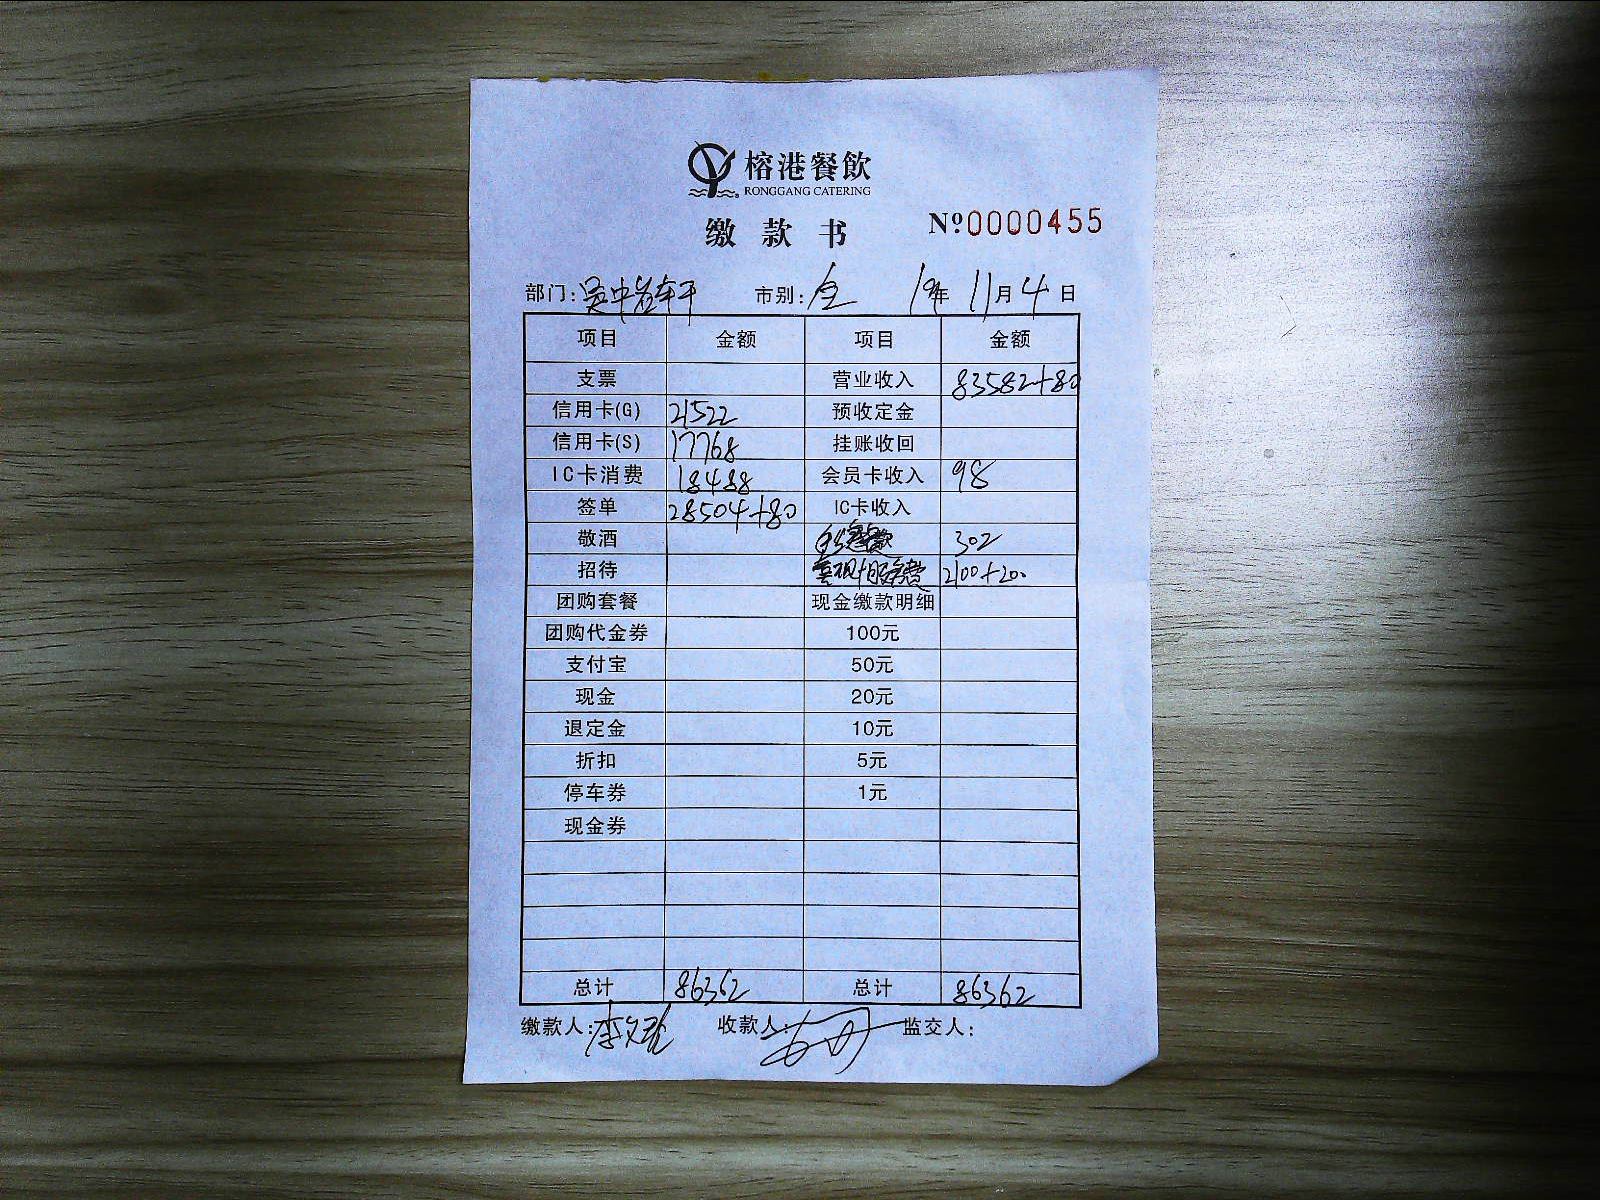 榕港餐飲
RONGGANG CATERING
缴款书 №0000455
部门：吴中 市别：全 19年 11月 4日
项目 金额 项目 金额
支票 营业收入 83582+80
信用卡(G) 21522 预收定金
信用卡(S) 17768 挂账收回
IC卡消费 18488 会员卡收入 98
签单 28504+80 IC卡收入
敬酒 302
招待 2100+200
团购套餐 现金缴款明细
团购代金券 100元
支付宝 50元
现金 20元
退定金 10元
折扣 5元
停车券 1元
现金券
总计 86362 总计 86362
缴款人：李文 收款人： 监交人：